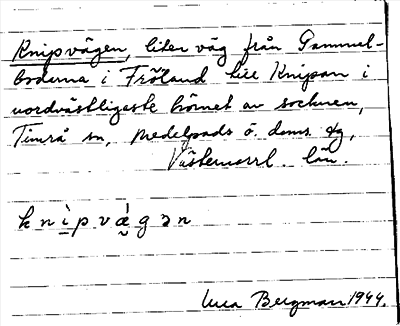 Knipvägen, liten väg från Gammel-
bodarna i Fröland till Knipan i
nordvästligaste hörnet av socknen,
Timrå sn, Medelpads ö. doms. dg,
Västernorrl. län.
k n ì p v ǽ g ə n
Bergman 1944.